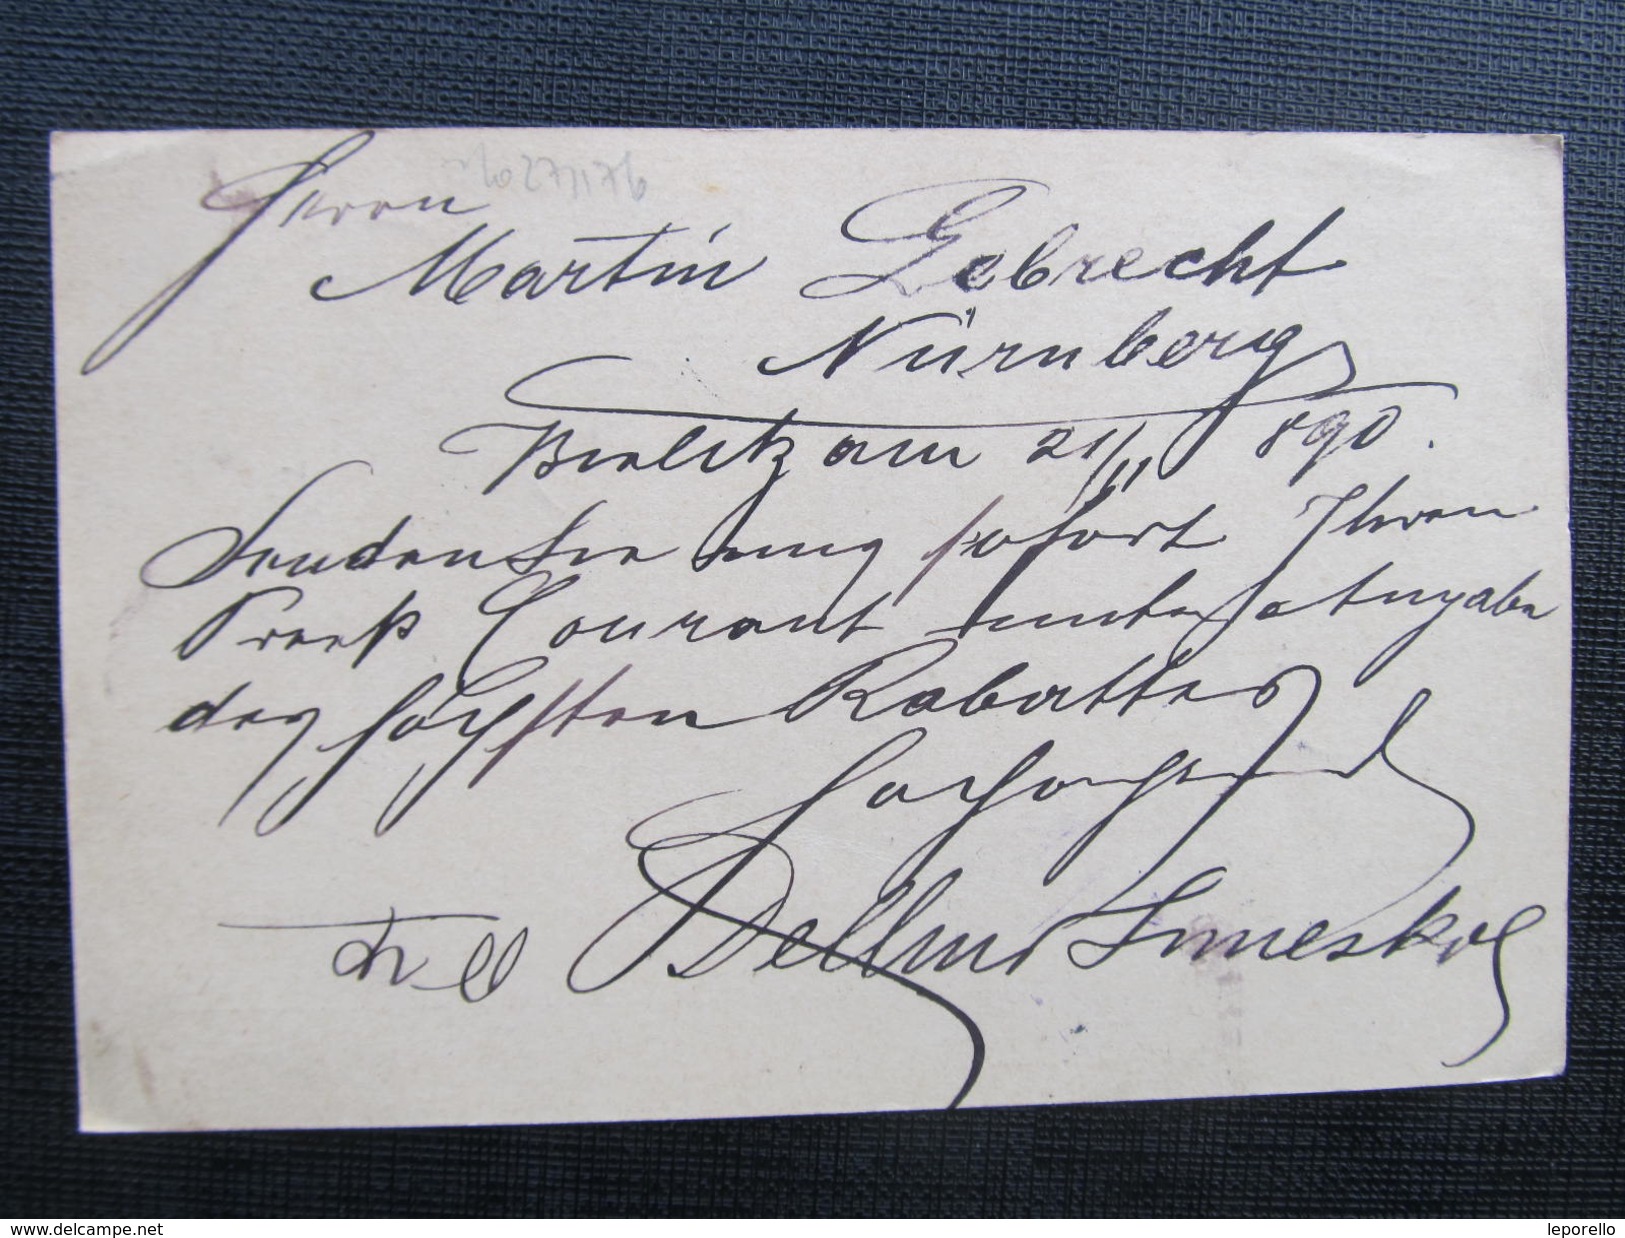 Herrn
Martin Gebrecht
Nürnberg
Bielitz am 21/11 890.
Senden Sie mir sofort Ihren
Preiß Courant unter Angabe
des höchsten Rabattes
Hochachtend
Dellmo Imeskal
www.delcampe.net
leporello